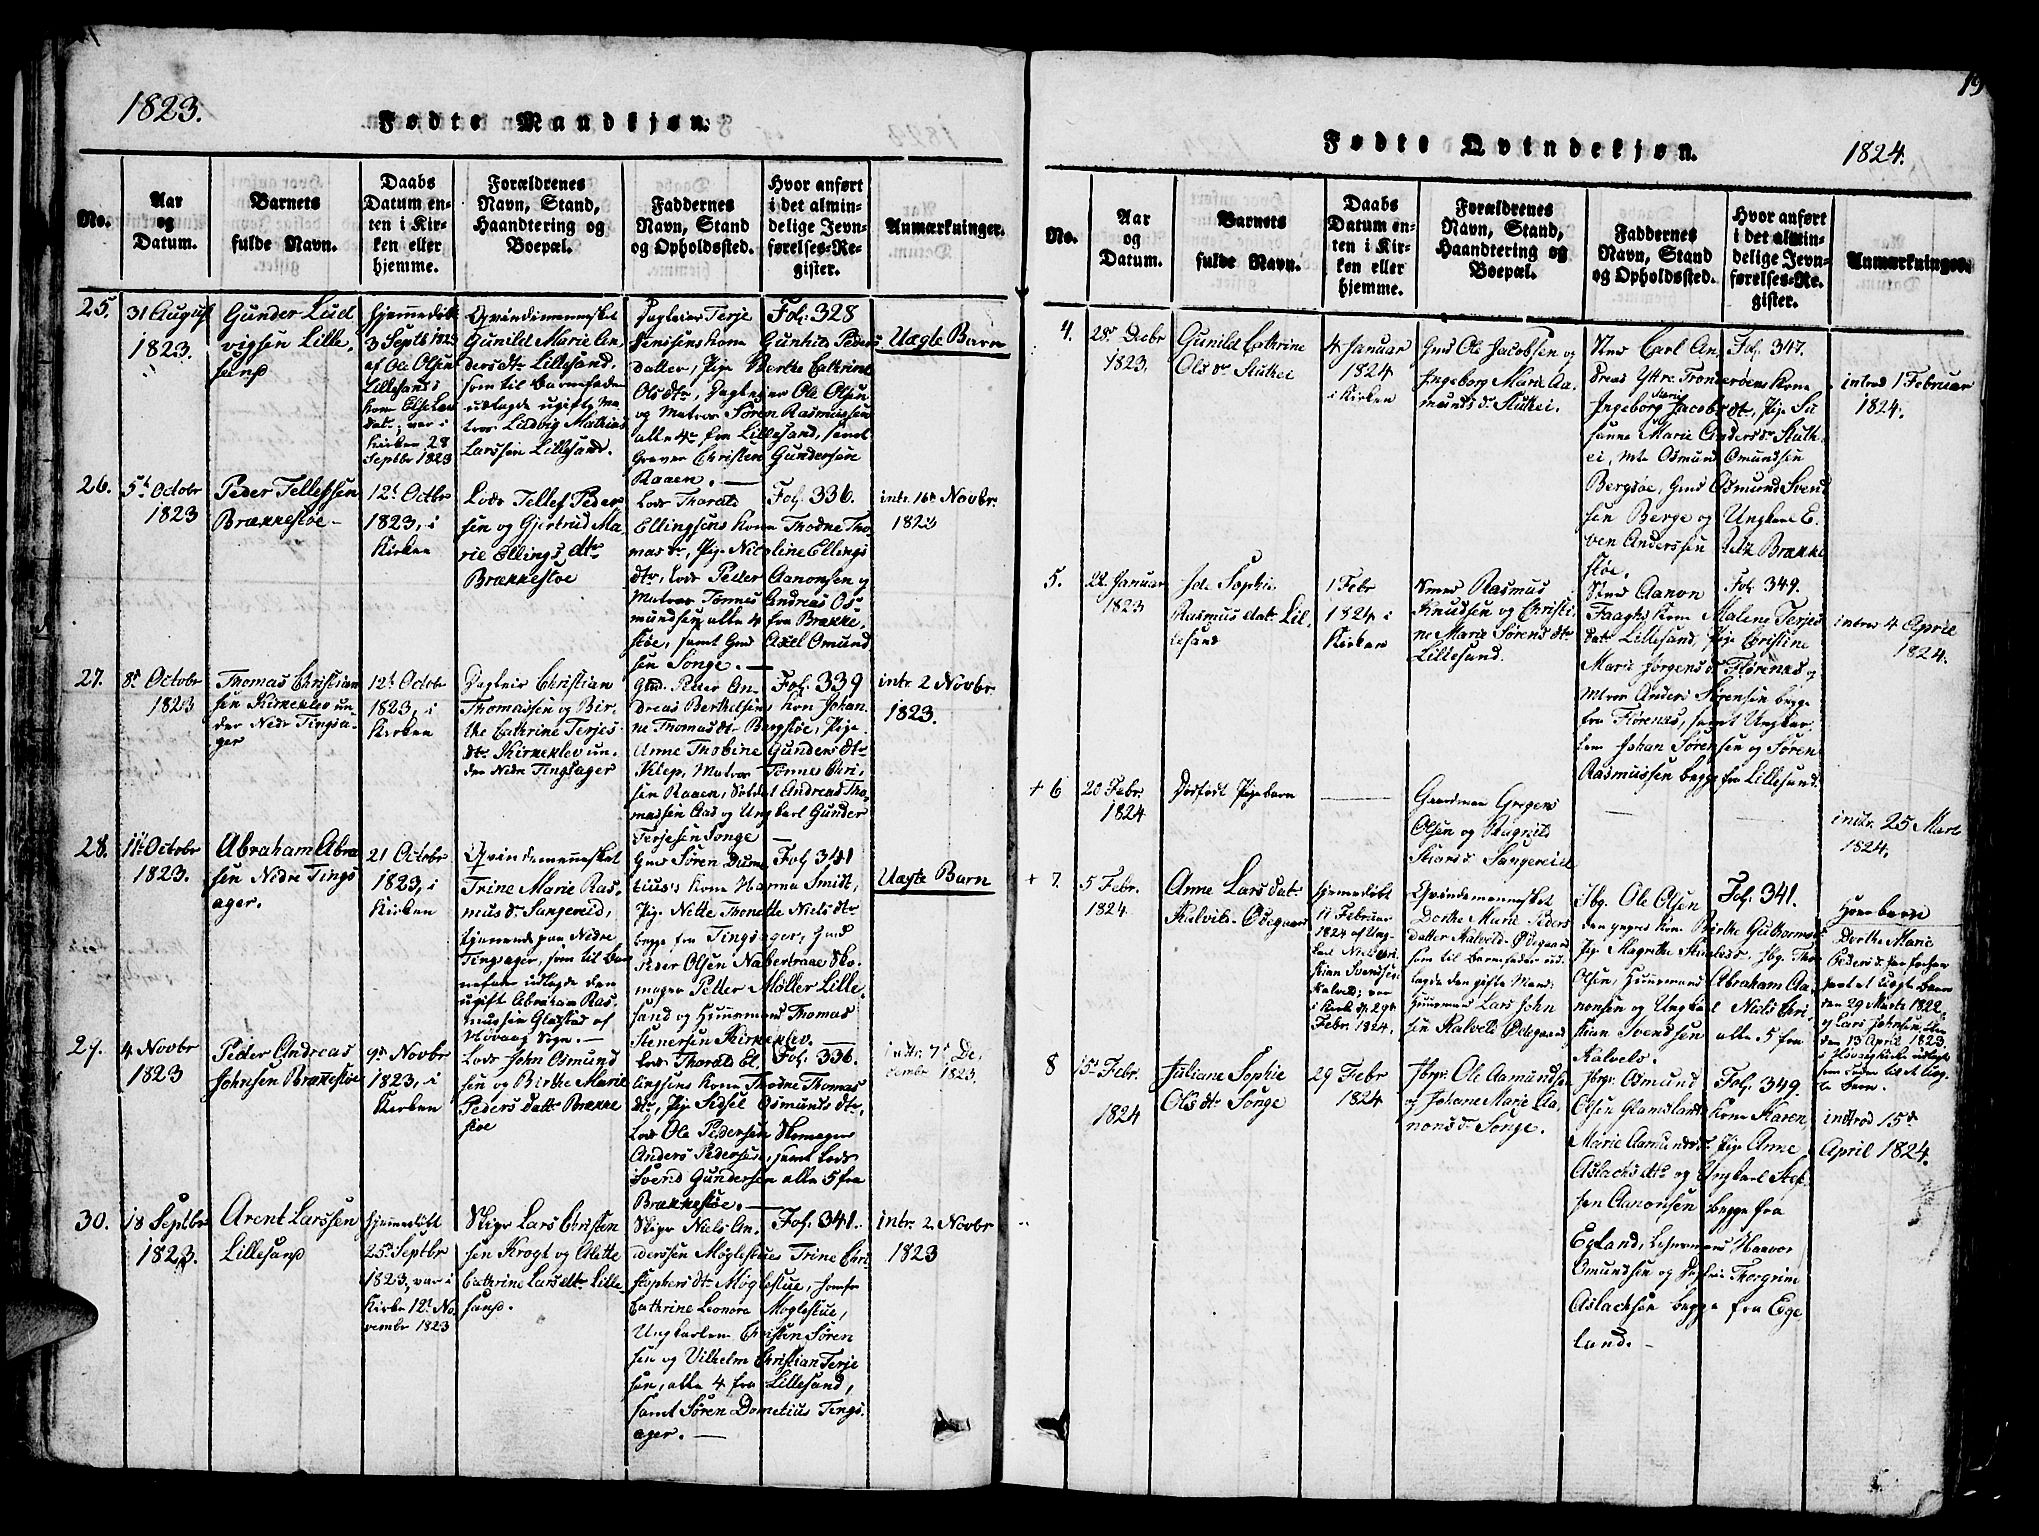 1823.
Fødte Mandkjøn.
No.
Aar
og
Datum.
Barnets
fulde Navn.
Daabs
Datum en-
ten i Kir-
ken eller
hjemme.
Forældrenes
Navn, Stand,
Haandtering og
Boepæl.
Faddernes
Navn, Stand
og Opholdssted.
Hvor anført
i det almin-
delige Jevn-
førelses-Re-
gister.
Anmærkninger.
25.
31 August
1823.
Gunder Lud
vigsen Lille,
sand
hjemmedøbt
3 Septb 1823
af Ole Olsen
Lillesands
kone Else Lars
datr, var i
Kirken 28
Septbr 1823
Qvindemennesket
Gunild Marie An
dersdtr Lillesand,
som til Barnefader
udlagde ugifte Ma
tros Ludvig Mathias
Larssen Lillesand.
Dagleier Terje
Jensens kone Gunhild Peders
datter, Pige Berthe Cathrine
Olsdtr, Dagleyer Ole Olsen
og Matros Søren Rasmussen
alle 4re fra Lillesand, samt
Graver Christen Gundersen
Raaen. —
Fol. 328
Uægte Barn
26.
5te Octobr
1823
Peder Tellefsen
Brækkestøe —
12te Octbr
1823, i
Kirken
Lods Tellef Peder
sen og Gjertrud Ma
rie Ellings dtr
Brækkestøe
Lods Thorald
Ellingsens kone Thodne Tho
mas dtr, Pige Nicoline Ellings
dtr, Lods Peder Aanonsen og
Matros Tønnes Andreas Os
mundsen alle 4 fra Brække,
støe, samt Gmd Axel Omund
sen Songe. —
Fol. 336.
intr. 16de Novbr.
1823
27.
8de Octobr
1823
Thomas Christian
sen Kirkeklev un
der Nedre Tingsa-
ger
12te Octobr
1823, i
Kirken
Dagleier Christian
Thomassen og Bir-
the Cathrine Terjes-
dtr Kirkeklev un-
der Nedre Tingsager
Gmd. Peder An-
dreas Berthelsens Kone Johan
ne Thomasdtr Bergstøe, Pige
Anne Thobine Gunders dtr
Matros Tønnes Chri,
sen Raaen, Soldat Andreas Tho,
massen Aas og Ungkarl Gunder
Terjesen Songe —
Fol. 339
intr. 2 Novbr
1823.
28.
11te Octobr
1823.
Abraham Abra
sen Nedre Tings
ager.
21 Octobr
1823, i
Kirken
Qvindemennesket
Trine Marie Ras,
mus dr Sangereid,
tjenende paa Nedre
Tingsager, som til Bar
nefader udlagde den
ugift Abraham Ras,
mussen Glastad af
Høvaag Sogn. —
Gmd Søren Dome
tius's Kone Hanna Smidt,
Pige Nette Thonette Niels dtr
begge fra Tingsager, Gmd
Peder Olsen Nabertraae Sko-
mager Petter Møller Lille-
sand og Huusmand Thomas
Stenersen Kirkeklev. —
Fol. 341
Uægte Barn
29.
4 Novbr
1823
Peder Andreas
Johnsen Brækkestøe
9de Novbr
1823, i
Kirken
Lods John Osmund
sen og Birthe Marie
Peders datr Brække
støe
Lods Thorald El,
lingsens kone Thodne Thomas
dtr, Pige Sidsel Osmunds dtr,
Lods Ole Pedersen Skomager
Anders Pedersen, samt Lods
Svend Gundersen alle 5 fra
Brækkestøe. —
Fol. 336.
intr. 7de De,
cembr 1823.
30.
18 Septbr
1823.
Arent Larssen
Lillesand
hjemmedøbt
25de Septbr
1823, var i
Kirke 12te No
vembr 1823
Skipr Lars Christen
sen Krogt og Alette
Cathrine Larsdtr Lille
sand.
Skipr Niels An
derssen Møglestue, Trine Chri
stophersdtr Møglestue, Jomfru
Cathrine Leonora Møglestue,
Ungkarlene Christen Søren
sen og Vilhelm Christian Terje
sen, alle 4 fra Lillesand,
samt Søren Dometius Tings,
ager. —
Fol. 341.
intr. 2 Novbr
1823
19
Fødte Qvindekjøn.
1824.
No.
Aar
og
Datum.
Barnets
fulde Navn.
Daabs
Datum en-
ten i Kir-
ken eller
hjemme.
Forældrenes
Navn, Stand,
Haandtering og
Boepæl.
Faddernes
Navn, Stand
og Opholdssted.
Hvor anført
i det almin-
delige Jevn-
førelses-Re-
gister.
Anmærkninger.
4.
28de Decbr
1823.
Gunild Cathrine
Ols dr Stutkei
4 Januar
1824
i Kirken
Gmd Ole Jacobsen og
Ingeborg Marie Aa-
munds dr Stutkei.
Carl An,
dreas Yttre Tronderøens Kone
Ingeborg Marie Jacobs dtr, Pige Su
sanne Marie Anders dr Stutk-
ei, Osmund Omundsen
Bergsøe, Gmd Osmund Svend
sen Berge og Ungkarl E-
ven Anderssen Brække
støe.
Fol. 347.
introd 1 Februar
1824.
5.
22 Januar
1823
Sophie
Rasmus datr Lil-
lesand
1 Febr
1824 i
Kirken
Rasmus
Knudsen og Christi-
ne Marie Sørens dtr
Lillesand.
Aanon
Faagts Kone Malene Terjes
datr Lillesand, Pige Christine
Marie Jørgens dr Florenæs og
Anders Sørensen begge
fra Florenæs, samt Ungkar-
lene Johan Sørensen og Søren
Rasmussen begge fra Lillesand.
Fol. 349.
introd 4 Aprile
1824.
+ 6
20 Febr.
1824
Dødfødt Pigebarn
—
Gaardmand Gregers
Olsen og
Sangereid
—
—
indtr. 25 Marts
1824.
+ 7.
5 Febr.
1824.
Anne Lars datr
Kalvild-Ødegaard
hjemmedøbt
11 Februar
1824 af Ung-
karl Niels Chri
stian Svendsen
Kalvild; var
i Kirke d. 29de
Febr. 1824.
Qvindemennesket
Dorthe Marie Peders
datter Kalvild-Ødegaard
som til Barnefader ud-
lagde den gifte Mand
Huusmand Lars John
sen Kalvild Ødegaard
Jbg. Ole Olsen
den yngres Kone Birthe Guttorms dr
Pige Magrethe Jbg. Tho
Olsen, Huusmand Abraham Aa-
nonsen og Ungkarl Niels Chri-
stian Svendsen alle 5 fra
Kalvild.
Fol. 341.
Dorthe Marie
Peders dr har forhen
havt et Uægte Barn
den 29 Marts 1822,
og Lars Johnsen, blev
den 13 April 1823,
i Høvaag Kirke udlagt
som Fader til et Uæg-
te Barn.
8
15de Febr.
1824
Juliane Sophie
Ols dtr Songe
29 Febr
1824
Jbrgr. Ole Aamundsen
og Johane Marie Aa,
nons dr Songe.
Jbrgr. Osmund
Olsen Glamslands Kone Karen
Marie Aamunds dr. Pige Anne
Aslachs dtr og Ungkarl Stef-
fen Aanonsen begge fra
Egland, Lehnsmand Haavor
Omundsen og Thorgrim
Aslachsen begge fra Ege
land. —
Fol. 349.
introd 15de
April 1824.